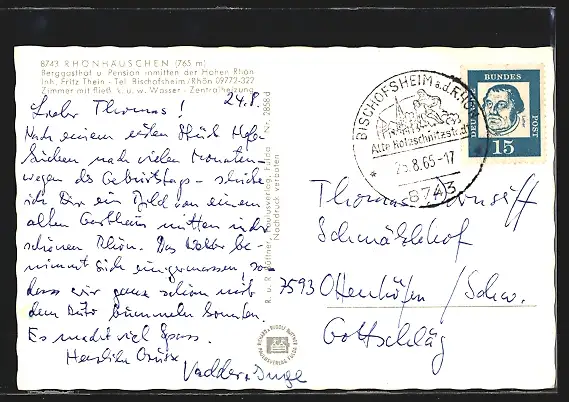 8743 RHÖNHÄUSCHEN (765 m)
Berggasthof u. Pension inmitten der Hohen Rhön
Inh. Fritz Thein - Tel. Bischofsheim/Rhön 09772-322
Zimmer mit fließ. k. u. w. Wasser - Zentralheizung
24.8.
Lieber Thomas!
Nach einem guten Stück Hefe-
kuchen nach vielen Monaten
wegen des Geburtstags - schicke
ich Dir ein Bild von einem
alten Gasthaus mitten in der
schönen Rhön. Das Wetter be-
nimmt sich einigermassen, so-
dass wir ganz schön mit
dem Auto bummeln konnten.
Es macht viel Spass.
Herzliche Grüsse
Vadder + Inge
R. u. R. Büttner, Paurusverlag, Fulda Nr. 2858 d
Nachdruck verboten
BISCHOFSHEIM a.d. RHÖN
Alte Holzschnitzstadt
25.8.65-17
8743
DEUTSCHE BUNDESPOST
15
Thomas
Schmälzlehof
7593 Ottenhöfen / Schw.
Gottschläg